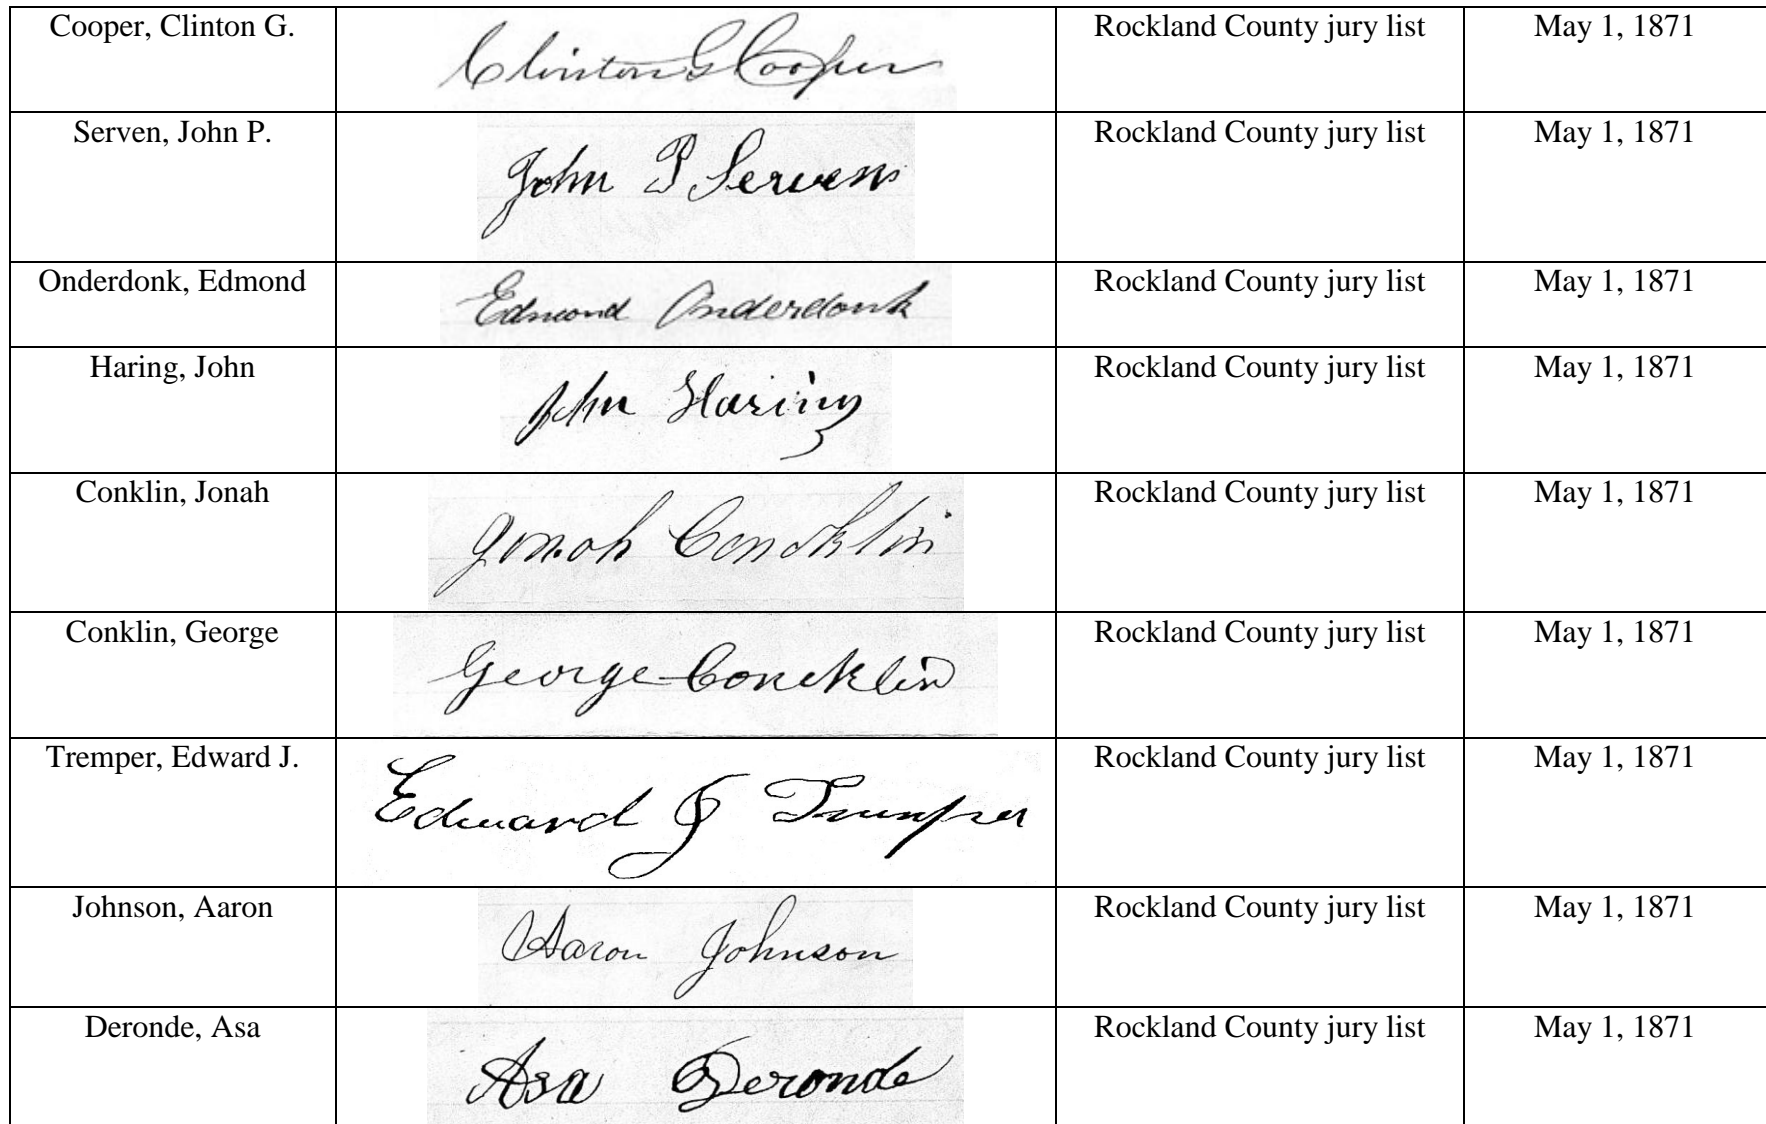 Cooper, Clinton G. Clinton G Cooper Rockland County jury list May 1, 1871
Serven, John P. John P Serven Rockland County jury list May 1, 1871
Onderdonk, Edmond Edmond Onderdonk Rockland County jury list May 1, 1871
Haring, John John Haring Rockland County jury list May 1, 1871
Conklin, Jonah Jonah Concklin Rockland County jury list May 1, 1871
Conklin, George George Concklin Rockland County jury list May 1, 1871
Tremper, Edward J. Edward J Tremper Rockland County jury list May 1, 1871
Johnson, Aaron Aaron Johnson Rockland County jury list May 1, 1871
Deronde, Asa Asa Deronde Rockland County jury list May 1, 1871